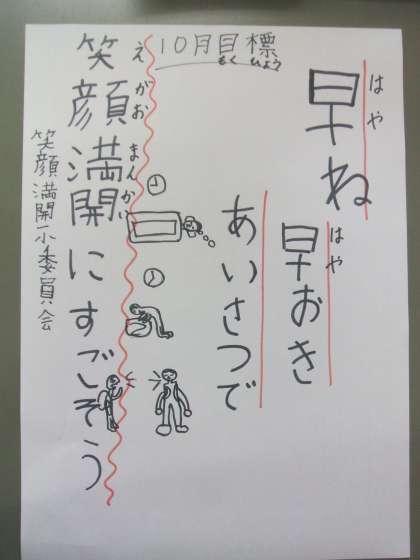 10月目標
もくひょう
はや
早ね
はや
早おき
あいさつで
えがおまんかい
笑顔満開にすごそう
笑顔満開小委員会